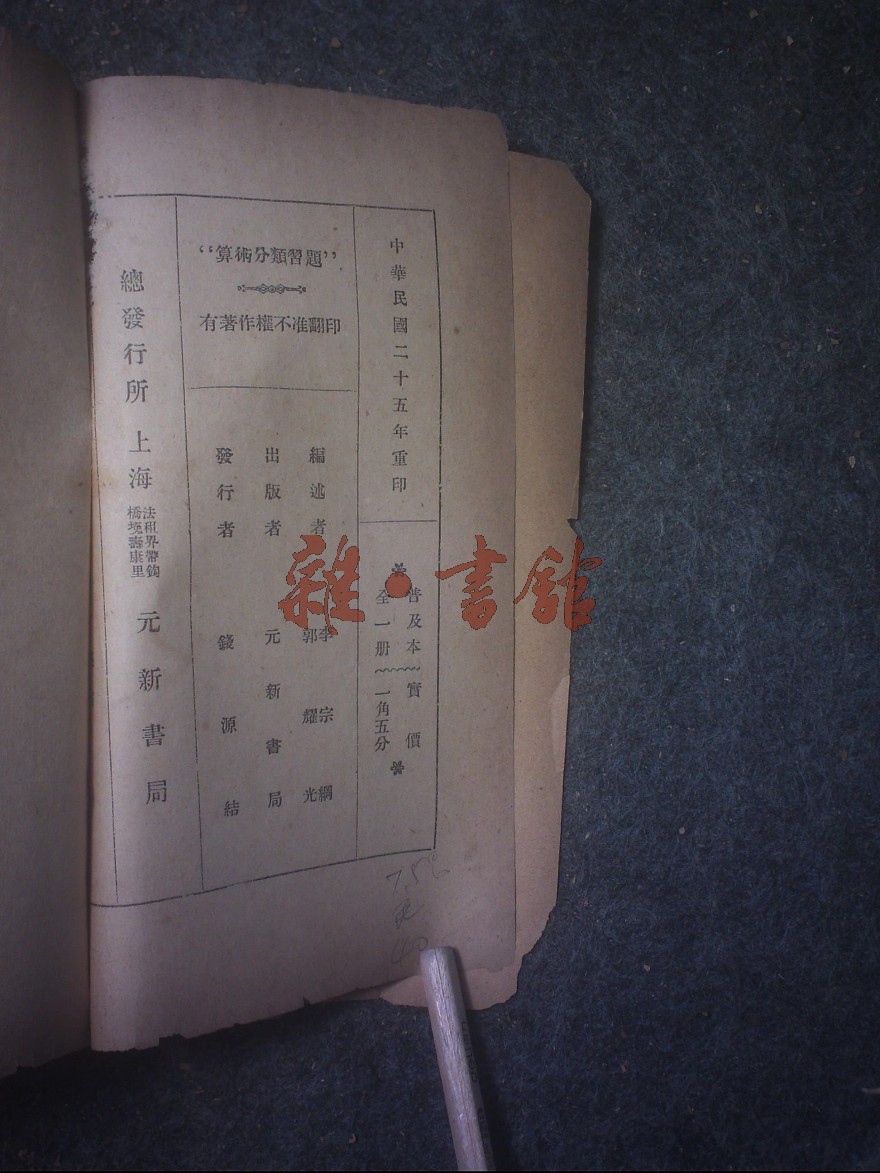 中華民國二十五年重印
普及本實價
全一册一角五分
“算術分類習題”
有著作權不准翻印
編述者 李宗綱
郭耀光
出版者 元新書局
發行者 錢源結
總發行所 上海 法租界帶鈎橋堍壽康里 元新書局
雜·書館